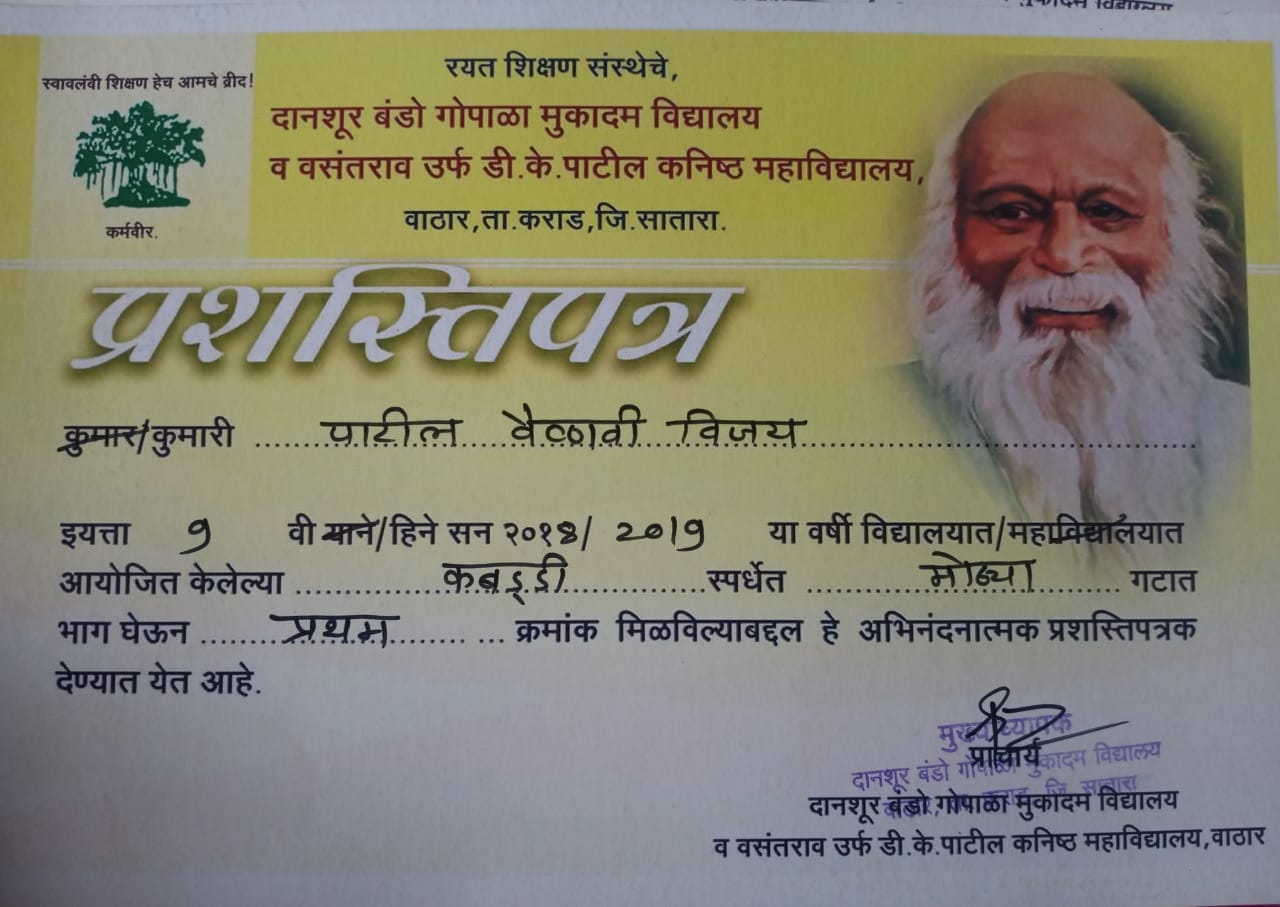 स्वावलंबी शिक्षण हेच आमचे ब्रीद!
कर्मवीर.
रयत शिक्षण संस्थेचे,
दानशूर बंडो गोपाळा मुकादम विद्यालय
व वसंतराव उर्फ डी.के.पाटील कनिष्ठ महाविद्यालय,
वाठार,ता.कराड,जि.सातारा.
प्रशस्तिपत्र
कुमार/कुमारी ......पाटील....वैष्णवी...विजय......
इयत्ता 9 वी याने/हिने सन २०१8/ 2019 या वर्षी विद्यालयात/महाविद्यालयात
आयोजित केलेल्या ......कबड्डी......स्पर्धेत ......मोठ्या...... गटात
भाग घेऊन ......प्रथम...... ... क्रमांक मिळविल्याबद्दल हे अभिनंदनात्मक प्रशस्तिपत्रक
देण्यात येत आहे.
मुख्याध्यापक
प्राचार्य
दानशूर बंडो गोपाळा मुकादम विद्यालय
दानशूर बंडो गोपाळा मुकादम विद्यालय
व वसंतराव उर्फ डी.के.पाटील कनिष्ठ महाविद्यालय,वाठार